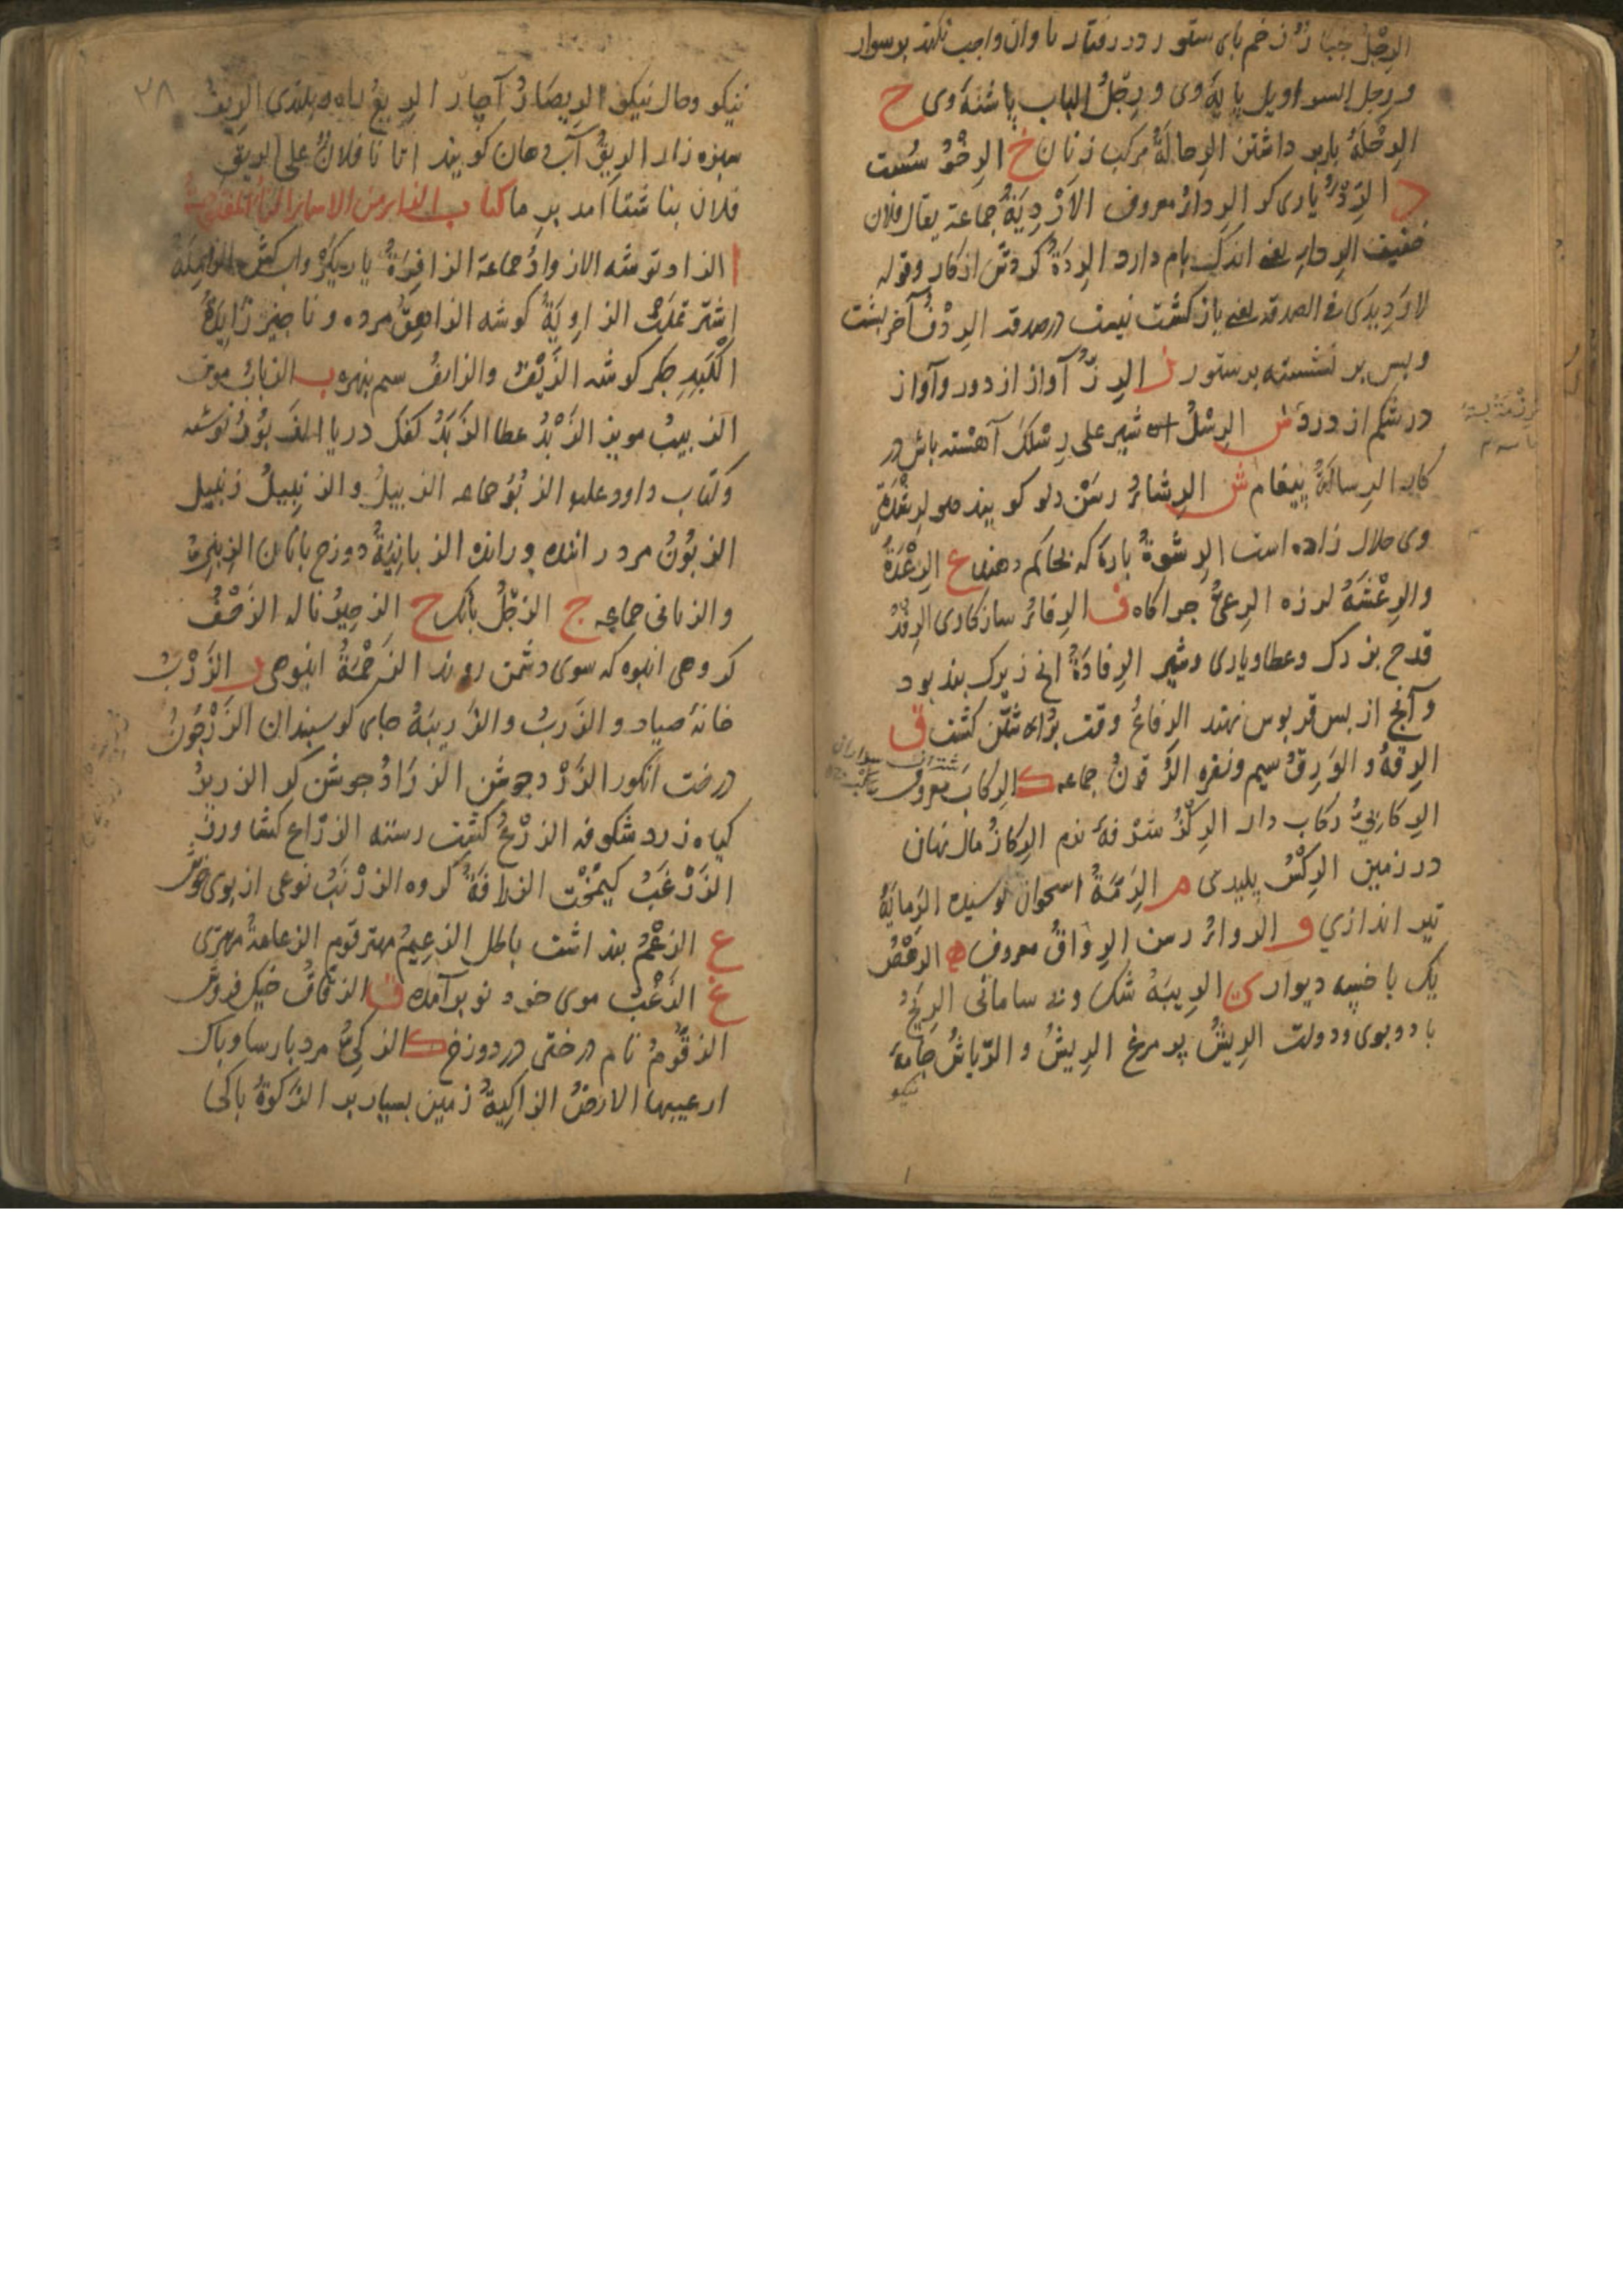 الرِّجْلُ جُبَارٌ زخم پای ستور در رفتار تاوان واجب نکند بر سوار
و رِجل السراویل پایهٔ وی و رِجْلُ الباب پاشنهٔ وی ح
الرِحْلَةُ بار بر داشتن الرِحالَةُ مرکب زنان خ الرِخْوُ سُست
د الرِدْءُ یاری کر الرداءُ معروف الاَرْدِیَةُ جماعة یقال فلان
خفیف الرداء یعنی اندک بام دارد الرِدَةُ کردش از کار وقوله
لا رِدِّیدی فی الصدقة یعنی باز کشت نیست در صدقه الرِدْفُ آخر پشت
و پس بر نشسته بر ستور ز الرِزُّ آواز از دور و آواز
در شکم از درد س الرِسْلُ شیر علی رِسْلک آهسته باش در
کار الرِسالَةُ پیغام ش الرِشاءُ رسن دلو کویند هو لِرِشْدَةٍ
وی حلال زاده است الرِشوةُ پارهٔ که بحاکم دهند ع الرِعْدَةُ
والرِعْشَةُ لرزه الرِعیُ چراکاه ف الرِفاءُ سازکاری الرِفْدُ
قدح بزرک و عطا و یاری و شیر الرِفادَةُ انچ زیرک بند بود
و آنچ از پس قربوس نهند الرِفاعُ وقت برداشتن کشت ق
الرِقَةُ و الوَرِقُ سیم و نقره الرِقونُ جماعه ک الرِکاب معروف
الرِکابیُّ رکاب دار الرِکزُ شَرْفهٔ نرم الرِکازُ مال نهان
در زمین الرِکْسُ پلیدی م الرِمَّةُ استخوان پوسیده الرِمایَةُ
تیر اندازی و الرِواءُ رسن الرِواقُ معروف ه الرِهْصُ
یک باخسه دیوار ی الرِیبَةُ شک و نه سامانی الرِیحُ
باد و بوی و دولت الرِیشُ پر مرغ الرِیشُ و الرِّیاشُ جامهٔ
نیکو
۲۸
نیکو و حال نیکو الرِیصَارُ آچار الرِیعُ راه و بلندی الرِیفُ
سبزه زار الرِیقُ آب دهان کویند اتانا فلانٌ علی الرِیق
فلان بناشتا آمد بر ما کتاب الزاء من الاسماء الزاء المفتوحة
ا الزاد توشه الازوادُ جماعة الزافِرَةُ یاریکر و آب کش الزامِلَةُ
اشتر تملیت الزاوِیَةُ کوشه الزاهِقُ مرده و ناچیز زایدةُ
الکَبِدِ جکر کوشه الزَیْفُ والزائف سیم نبهره ب الزبابُ موش
الزبیبُ مویز الزَبْدُ عطا الزَبَدُ کفک دریا الزَبُورُ نوشته
و کتاب داود علیه الزُبُرُ جماعه الزبیلُ والزنبیلُ زنبیل
الزبُونُ مرد راننده و رانده الزبانِیَةُ دوزخ بانان الزِبنِیَةُ
والزبانی جماعه ج الزجْلُ بانک ح الزحیرُ ناله الزَحْفُ
کروهی انبوه که سوی دشمن روند الزَحْمَةُ انبوهی ر الزَرْبُ
خانهٔ صیاد والزَربُ والزَریبَةُ جای کوسپندان الزَرْجُونُ
درخت انکور الزَرْدُ جوشن الزَرَادُ جوشن کر الزریرُ
کیاه زرد شکوفه الزَرْعُ کشت رسته الزَرّاع کشاورز
الزَرْغَبُ کیمُخْت الزَرافَةُ کروه الزَرْنَبُ نوعی از بوی خوش
ع الزعْمُ پنداشت باطل الزعِیمُ مهتر قوم الزعامةُ مهتری
غ الزَغْبُ موی خرد نو بر آمده ق الزقاقُ خیک فروش
الزقُّومُ نام درختی در دوزخ ک الزکیُّ مرد پارسا و پاک
از عیبها الارضُ الزاکِیةُ زمین بسیار بر الزکوةُ پاکی